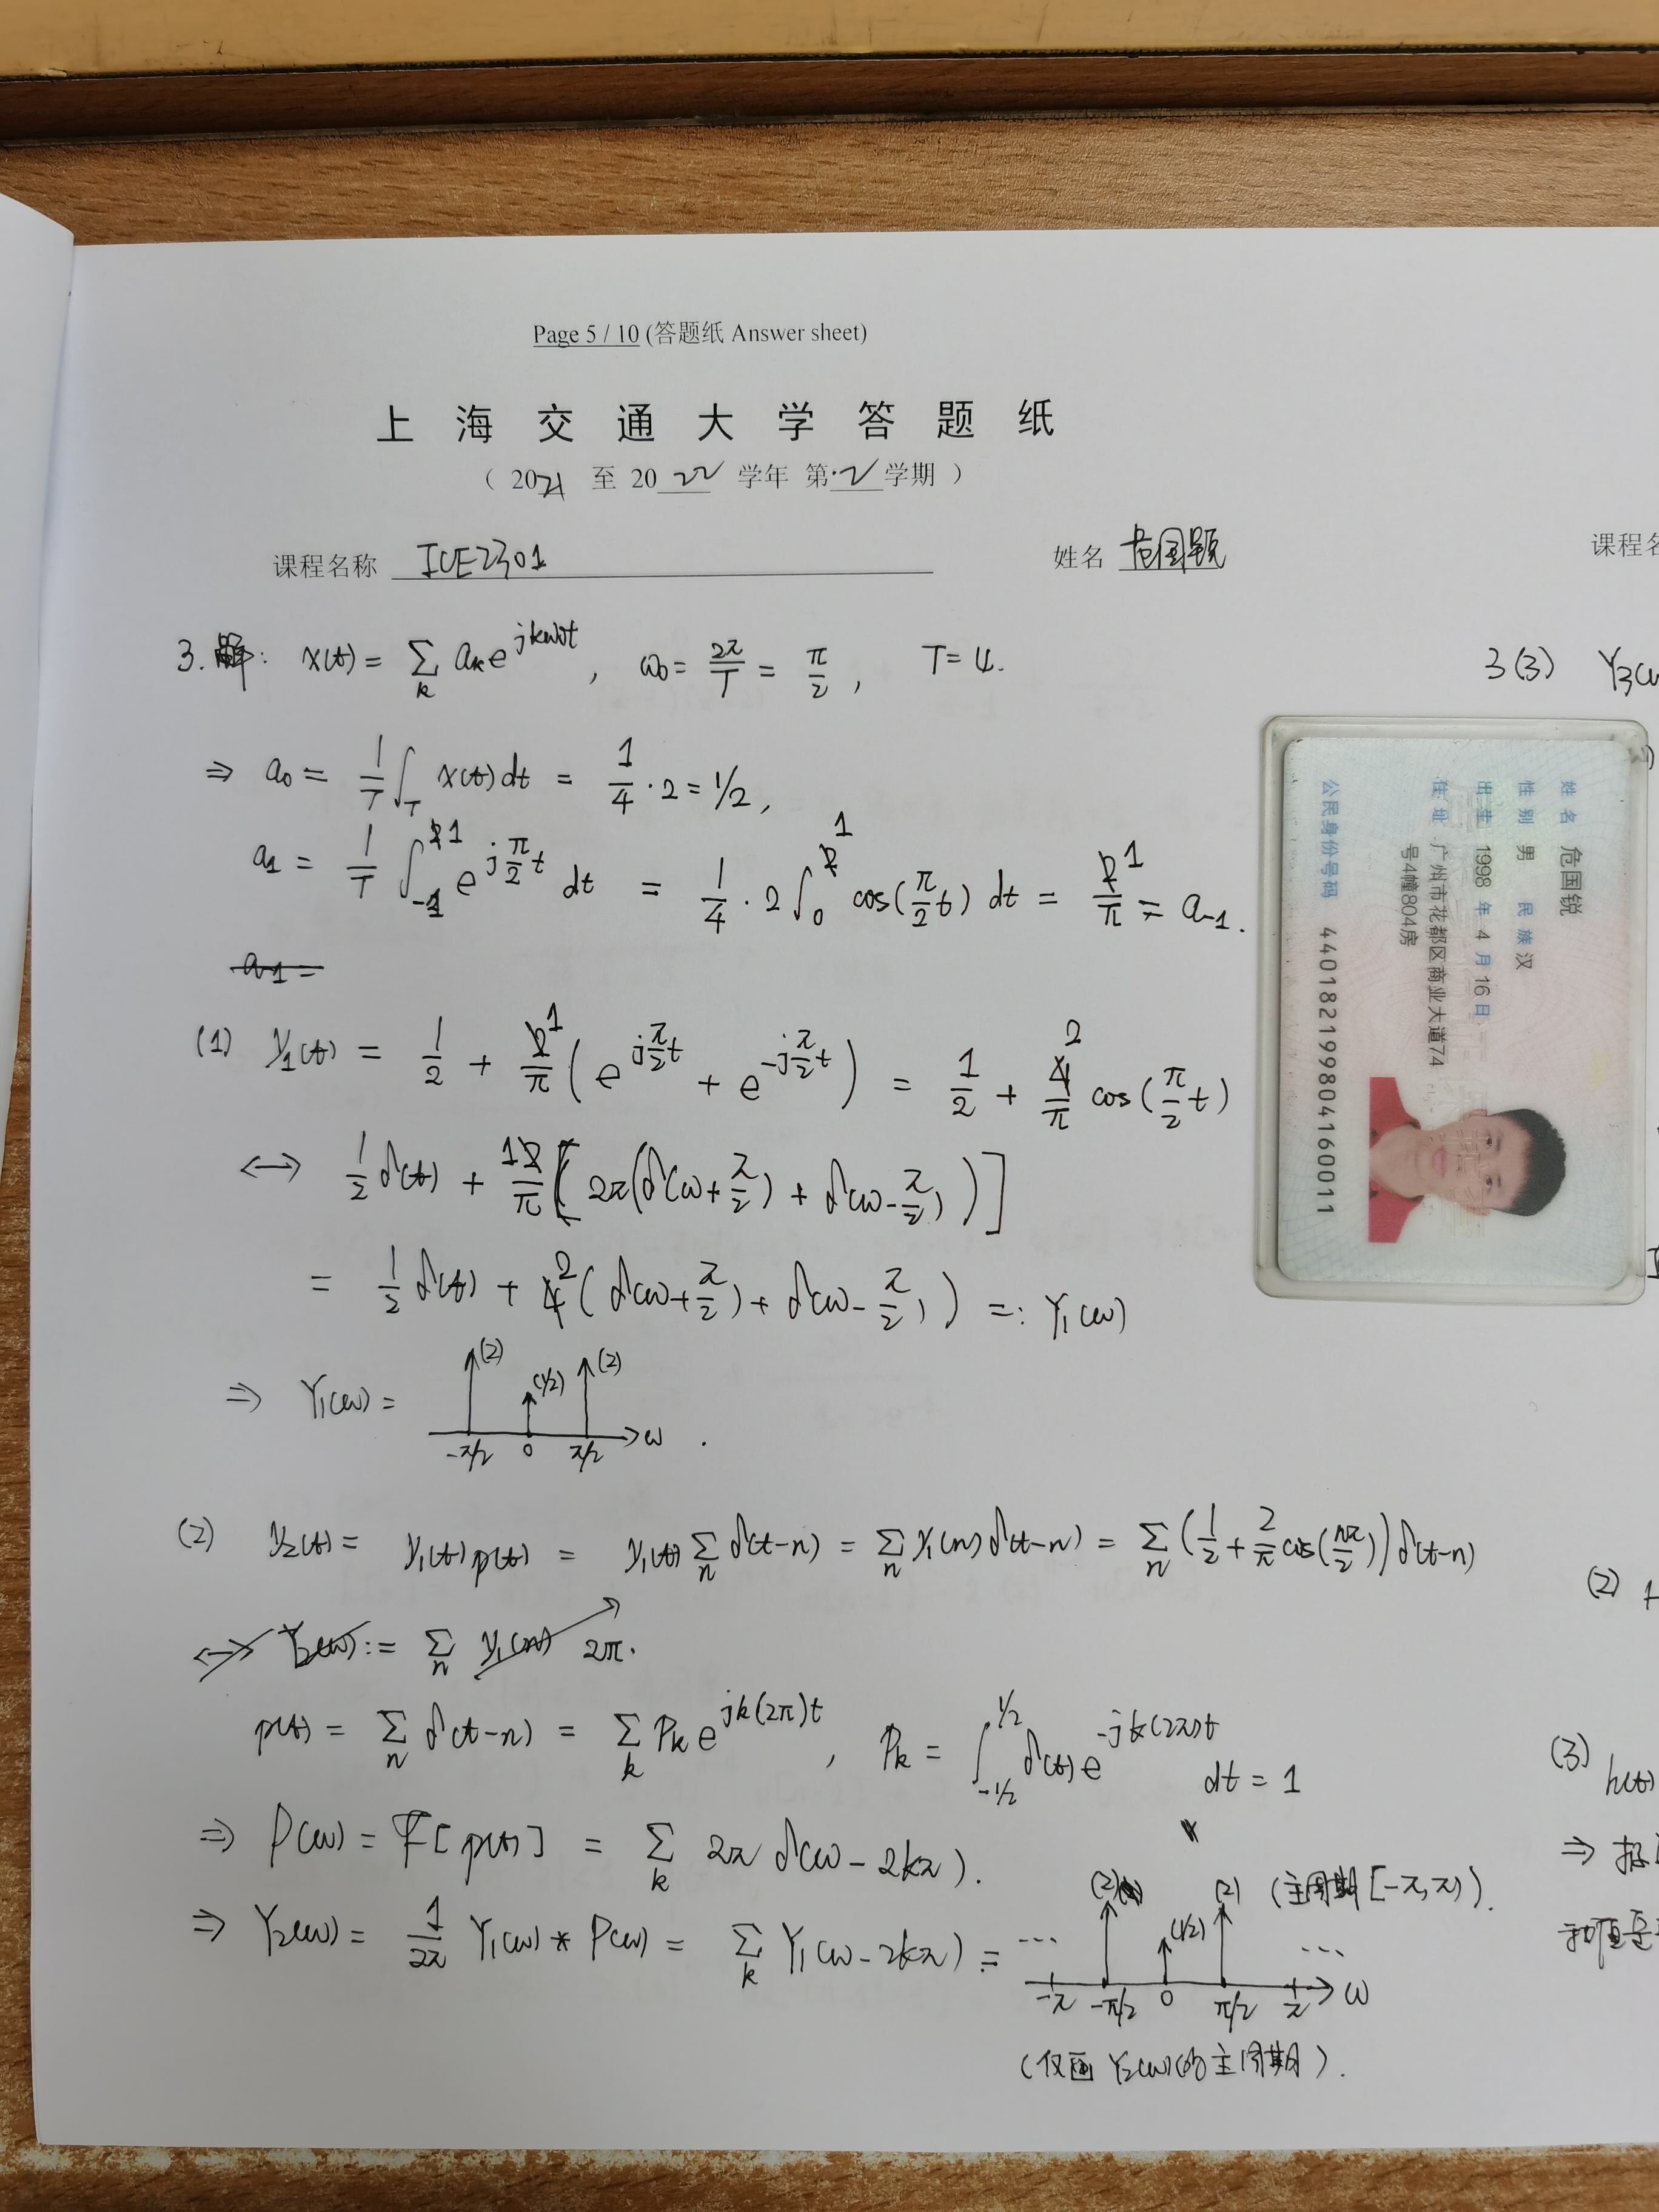 Page 5 / 10 (答题纸 Answer sheet)
上 海 交 通 大 学 答 题 纸
( 2021 至 2022 学年 第 2 学期 )
课程名称 ICE2301 姓名
课程名
3. 解: x(t) = Σ_k a_k e^{jkω₀t}, ω₀ = 2π/T = π/2, T = 4.
⇒ a₀ = 1/T ∫_T x(t) dt = 1/4 · 2 = 1/2,
a₁ = 1/T ∫_{-1}^{1} e^{jπ/2 t} dt = 1/4 · 2 ∫_0^1 cos(π/2 t) dt = 1/π = a₋₁.
a₁ =
(1) y₁(t) = 1/2 + 1/π (e^{jπ/2 t} + e^{-jπ/2 t}) = 1/2 + 2/π cos(π/2 t)
↔ 1/2 δ(t) + 1/π [2π(δ(ω+π/2) + δ(ω-π/2))]
= 1/2 δ(t) + 2(δ(ω+π/2) + δ(ω-π/2)) =: Y₁(ω)
⇒ Y₁(ω) = (2) (1/2) (2)
-π/2 0 π/2 ω .
(2) y₂(t) = y₁(t)p(t) = y₁(t) Σ_n δ(t-n) = Σ_n y₁(n)δ(t-n) = Σ_n (1/2 + 2/π cos(nπ/2))δ(t-n)
↔ Y₂(ω) := Σ_n y₁(n) 2π.
p(t) = Σ_n δ(t-n) = Σ_k P_k e^{jk(2π)t}, P_k = ∫_{-1/2}^{1/2} δ(t) e^{-jk(2π)t} dt = 1
⇒ P(ω) = F[p(t)] = Σ_k 2π δ(ω-2kπ).
⇒ Y₂(ω) = 1/2π Y₁(ω) * P(ω) = Σ_k Y₁(ω-2kπ) = ... (2) (1/2) (2) ... (主周期 [-π,π)).
-π -π/2 0 π/2 π ω
(仅画 Y₂(ω) 的主周期).
3(3) Y₃(ω
(2)
(3) h(t)
⇒
姓名 危国锐
性别 男 民族 汉
出生 1998 年 4 月 16 日
住址 广州市花都区商业大道74
号4幢804房
公民身份号码 440182199804160011